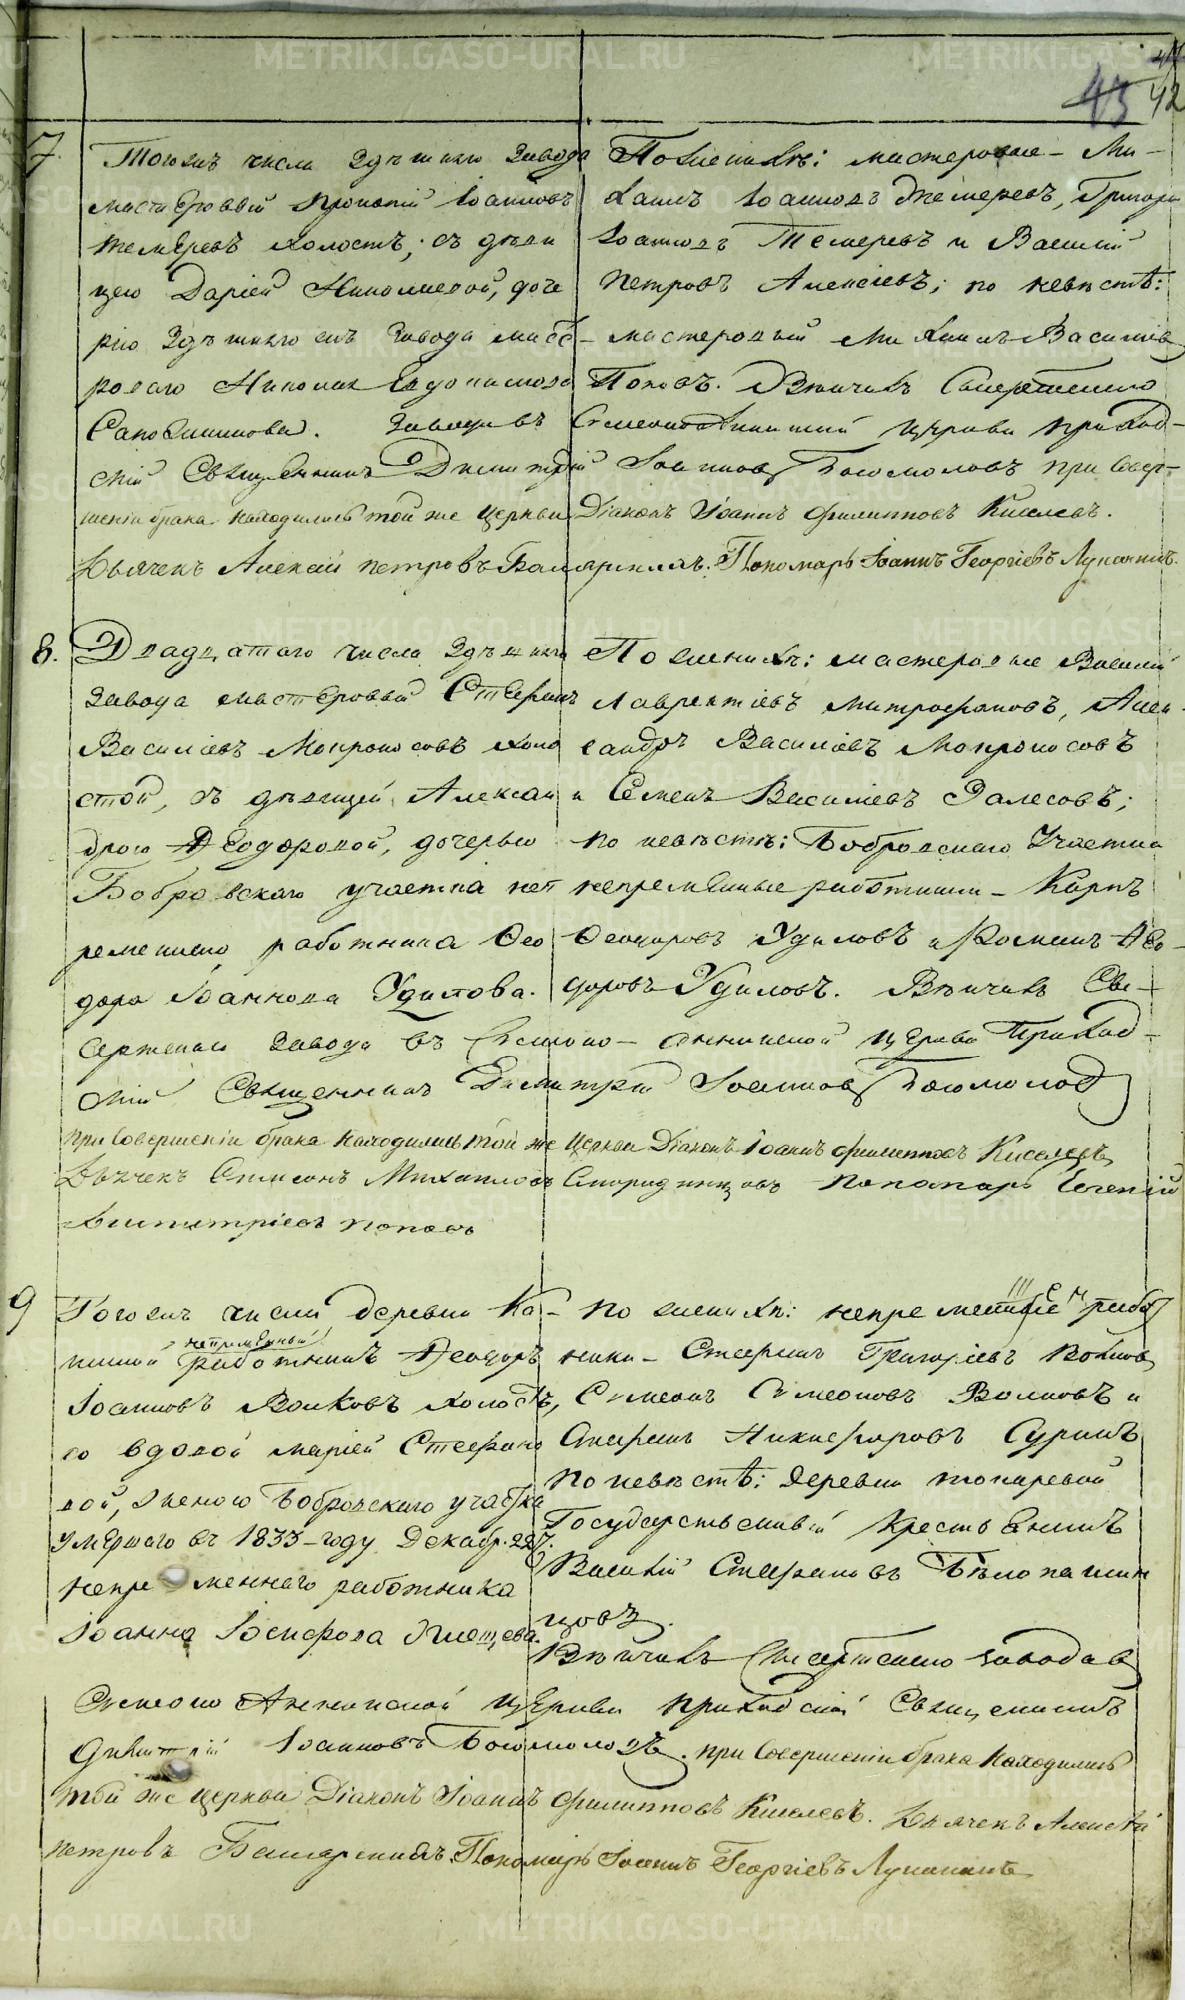 METRIKI.GASO-URAL.RU
43 42
7.
Тогожъ числа Здѣшняго Завода
мастеровый Прокопій Іоанновъ
Темеревъ холостъ; съ дѣви
цею Даріею Николаевой, доче
рію Здѣшнягожъ Завода масте-
роваго Николая Евдокимова
Сапожникова.
Поженихѣ: мастеровые - Ми-
хаилъ Іоанновъ Темеревъ, Григорій
Іоанновъ Темеревъ и Василій
Петровъ Алексѣевъ; по невѣстѣ:
мастеровый Михаилъ Васильевъ
Поповъ. Вѣнчалъ Сысертскаго
Завода въ Симеоно Аннинской церкви приход-
скій Священникъ Димитрій Іоанновъ Богомоловъ при совер-
шеніи брака находились той же церкви Діаконъ Іоаннъ Филипповъ Киселевъ.
Дьячекъ Алексій Петровъ Пономарь Іоаннъ Георгіевъ
8.
Двадцатаго числа Здѣшняго
Завода мастеровый Стефанъ
Василіевъ Мокроносовъ холо
стой, съ дѣвицей Алексан
дрою Ѳеодоровой, дочерью
Бобровскаго участка неп
ременнаго работника Ѳео
дора Іоаннова Удилова.
Поженихѣ: мастеровые Василій
Лаврентіевъ Митрофановъ, Алек
сандръ Василіевъ Мокроносовъ
и Семенъ Василіевъ Залесовъ;
по невѣстѣ: Бобровскаго Участка
непремѣнные работники - Карпъ
Ѳеодоровъ Удиловъ и Романъ Ѳео-
доровъ Удиловъ. Вѣнчалъ Сы-
сертскаго Завода въ Симеоно-Аннинской церкви Приход-
скій Священникъ Димитрій Іоанновъ Богомоловъ
при совершеніи брака находились той же церкви Діаконъ Іоаннъ Филипповъ Киселевъ
Дьячекъ Симеонъ Михаиловъ Спиридонцовъ пономарь Евгеній
Димитріевъ поповъ
9
Тогожъ числа деревни Ка-
непремѣнный
работникъ Ѳеодоръ
Іоанновъ Волковъ холостъ,
со вдовой Маріей Стефано
вой, женою Бобровскаго участка
умершаго въ 1833-году Декабр. 22.
непременнаго работника
Іоанна Іосифова
по женихѣ: непременные рабо
ники - Стефанъ Григоріевъ Волковъ,
Симеонъ Симеоновъ Волковъ и
Стефанъ Никифоровъ Суринъ
по невѣстѣ: деревни токаревой
Государственный Крестьянинъ
Василій Стефановъ Бѣлопашин
цовъ.
Вѣнчалъ Сысертскаго завода въ
Симеоно Аннинской церкви приходскій Священникъ
Димитрій Іоанновъ Богомоловъ. при совершеніи брака находились
той же церкви Діаконъ Іоаннъ Филипповъ Киселевъ. Дьячекъ Алексій
петровъ Пономарь Іоаннъ Георгіевъ